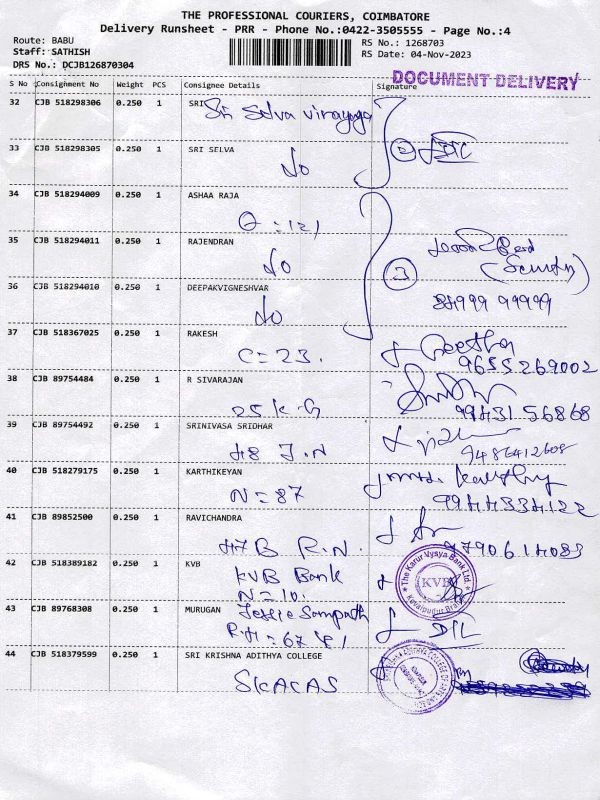 THE PROFESSIONAL COURIERS, COIMBATORE
Delivery Runsheet - PRR - Phone No.:0422-3505555 - Page No.:4
Route: BABU
Staff: SATHISH
DRS No.: DCJB126870304
RS No.: 1268703
RS Date: 04-Nov-2023
DOCUMENT DELIVERY
S No Consignment No Weight PCS Consignee Details Signature
32 CJB 518298306 0.250 1 SRI
Sri Selva Vinayaga
33 CJB 518298305 0.250 1 SRI SELVA
do
2
34 CJB 518294009 0.250 1 ASHAA RAJA
35 CJB 518294011 0.250 1 RAJENDRAN
do
3
(Security)
36 CJB 518294010 0.250 1 DEEPAKVIGNESHVAR
do
99999
37 CJB 518367025 0.250 1 RAKESH
C = 23.
Geetha
9655269002
38 CJB 89754484 0.250 1 R SIVARAJAN
25 K.G
9943156868
39 CJB 89754492 0.250 1 SRINIVASA SRIDHAR
48 J.N
9486412608
40 CJB 518279175 0.250 1 KARTHIKEYAN
N = 87
9944334122
41 CJB 89852500 0.250 1 RAVICHANDRA
47 B R.N.
9790614083
42 CJB 518389182 0.250 1 KVB
KVB Bank
N = 10.
The Karur Vysya Bank Ltd.
KVB
Kovaipudur Branch
43 CJB 89768308 0.250 1 MURUGAN
Jessie Sampath
44 CJB 518379599 0.250 1 SRI KRISHNA ADITHYA COLLEGE
SKACAS